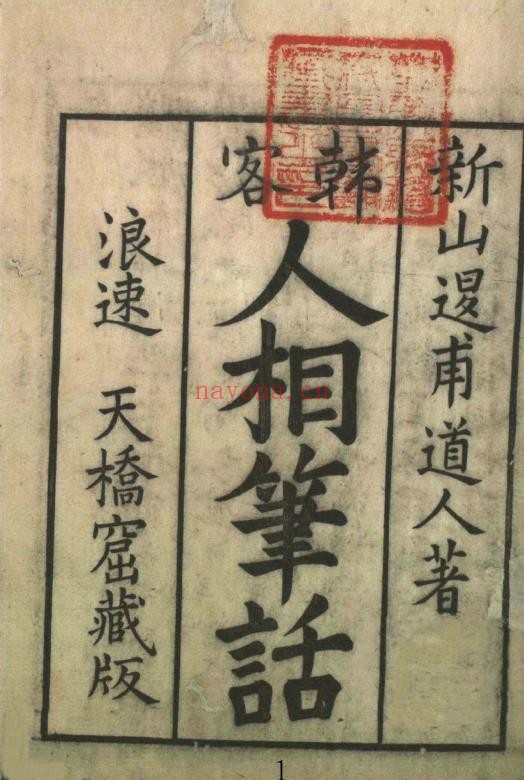 新山退甫道人著
韓客
人相筆話
浪速 天橋窟藏版
nayona.cn
1